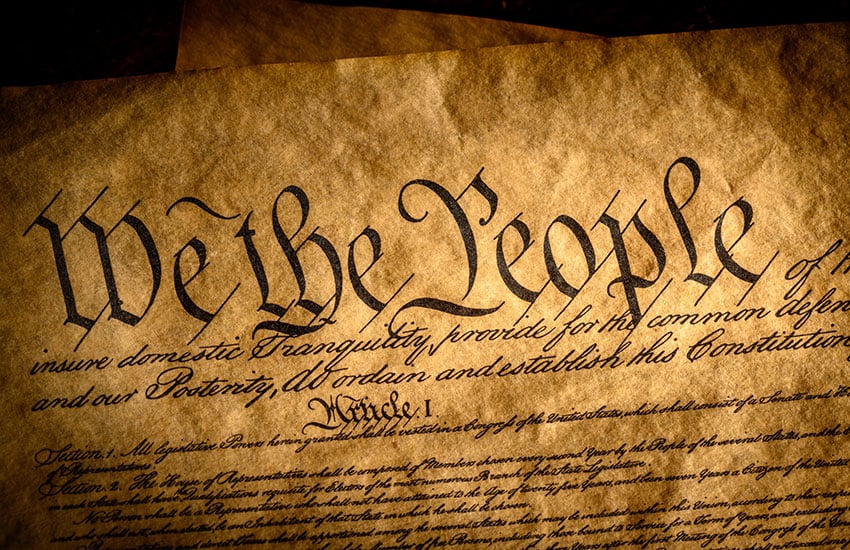 We the People of th
insure domestic Tranquility, provide for the common defen
and our Posterity, do ordain and establish this Constitution
Article. I.
Section. 1. All legislative Powers herein granted shall be vested in a Congress of the United States, which shall consist of a Senate and H
of Representatives.
Section. 2. The House of Representatives shall be composed of Members chosen every second Year by the People of the several States, and the
in each State shall have Qualifications requisite for Electors of the most numerous Branch of the State Legislature.
No Person shall be a Representative who shall not have attained to the Age of twenty five Years, and been seven Years a Citizen of the United
and who shall not, when elected, be an Inhabitant of that State in which he shall be chosen.
and direct Taxes shall be apportioned among the several States which may be included within this Union, according to their respec
of free Persons, including those bound to Service for a Term of Years, and excluding
after the first Meeting of the Congress of the Un